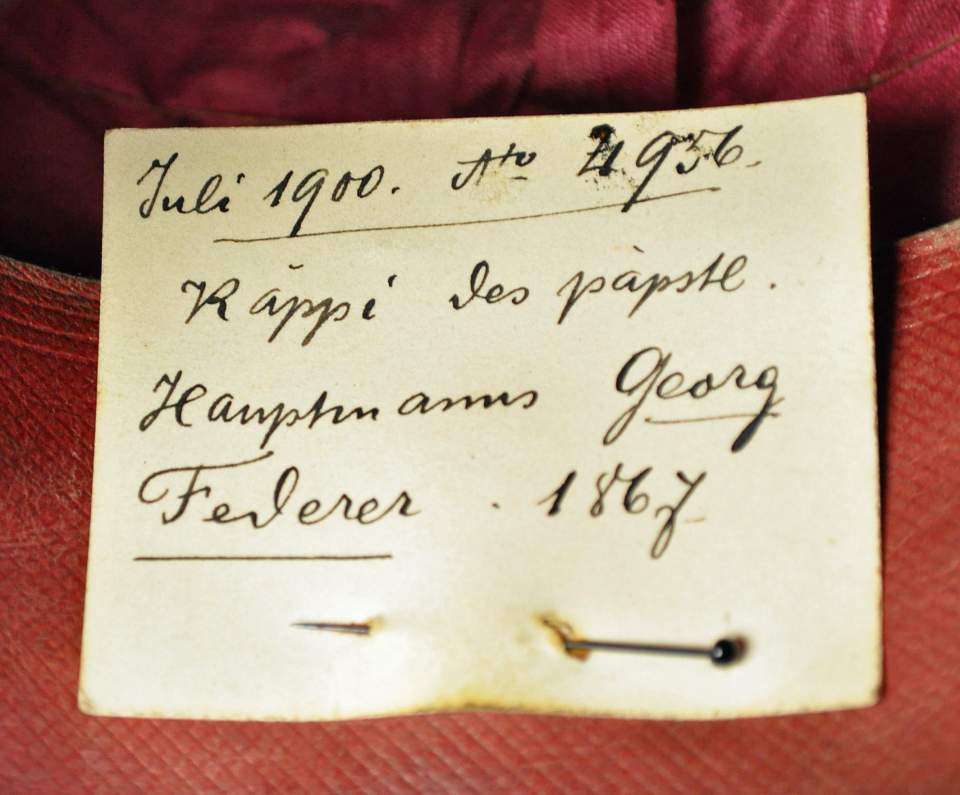 Juli 1900. No 4956.
Käppi des päpstl.
Hauptmanns Georg
Federer. 1867